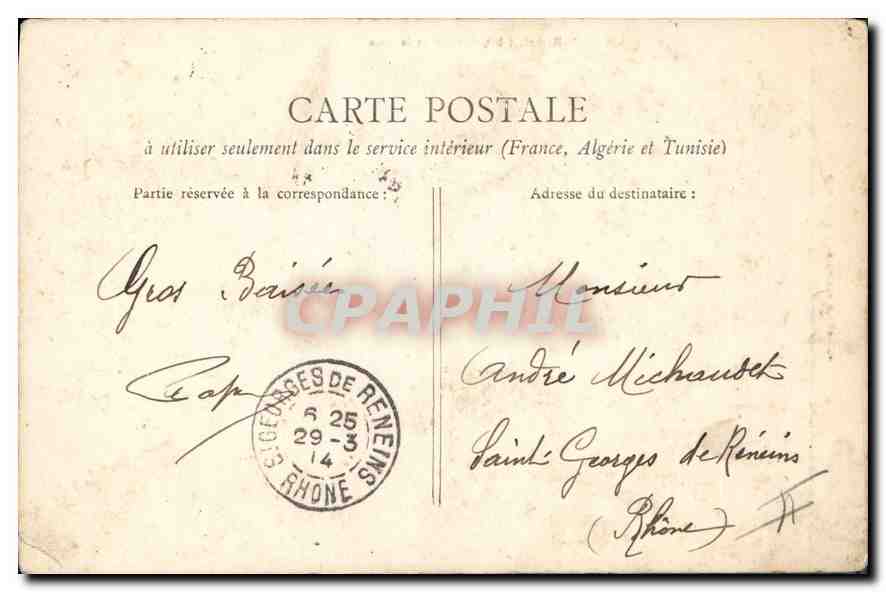 CARTE POSTALE
à utiliser seulement dans le service intérieur (France, Algérie et Tunisie)
Partie réservée à la correspondance :
Adresse du destinataire :
Gros Baisée
Monsieur
André Michaudet
Saint Georges de Réneins
(Rhône)
ST GEORGES DE RENEINS
6 25
29-3
14
RHONE
CPAPHIL